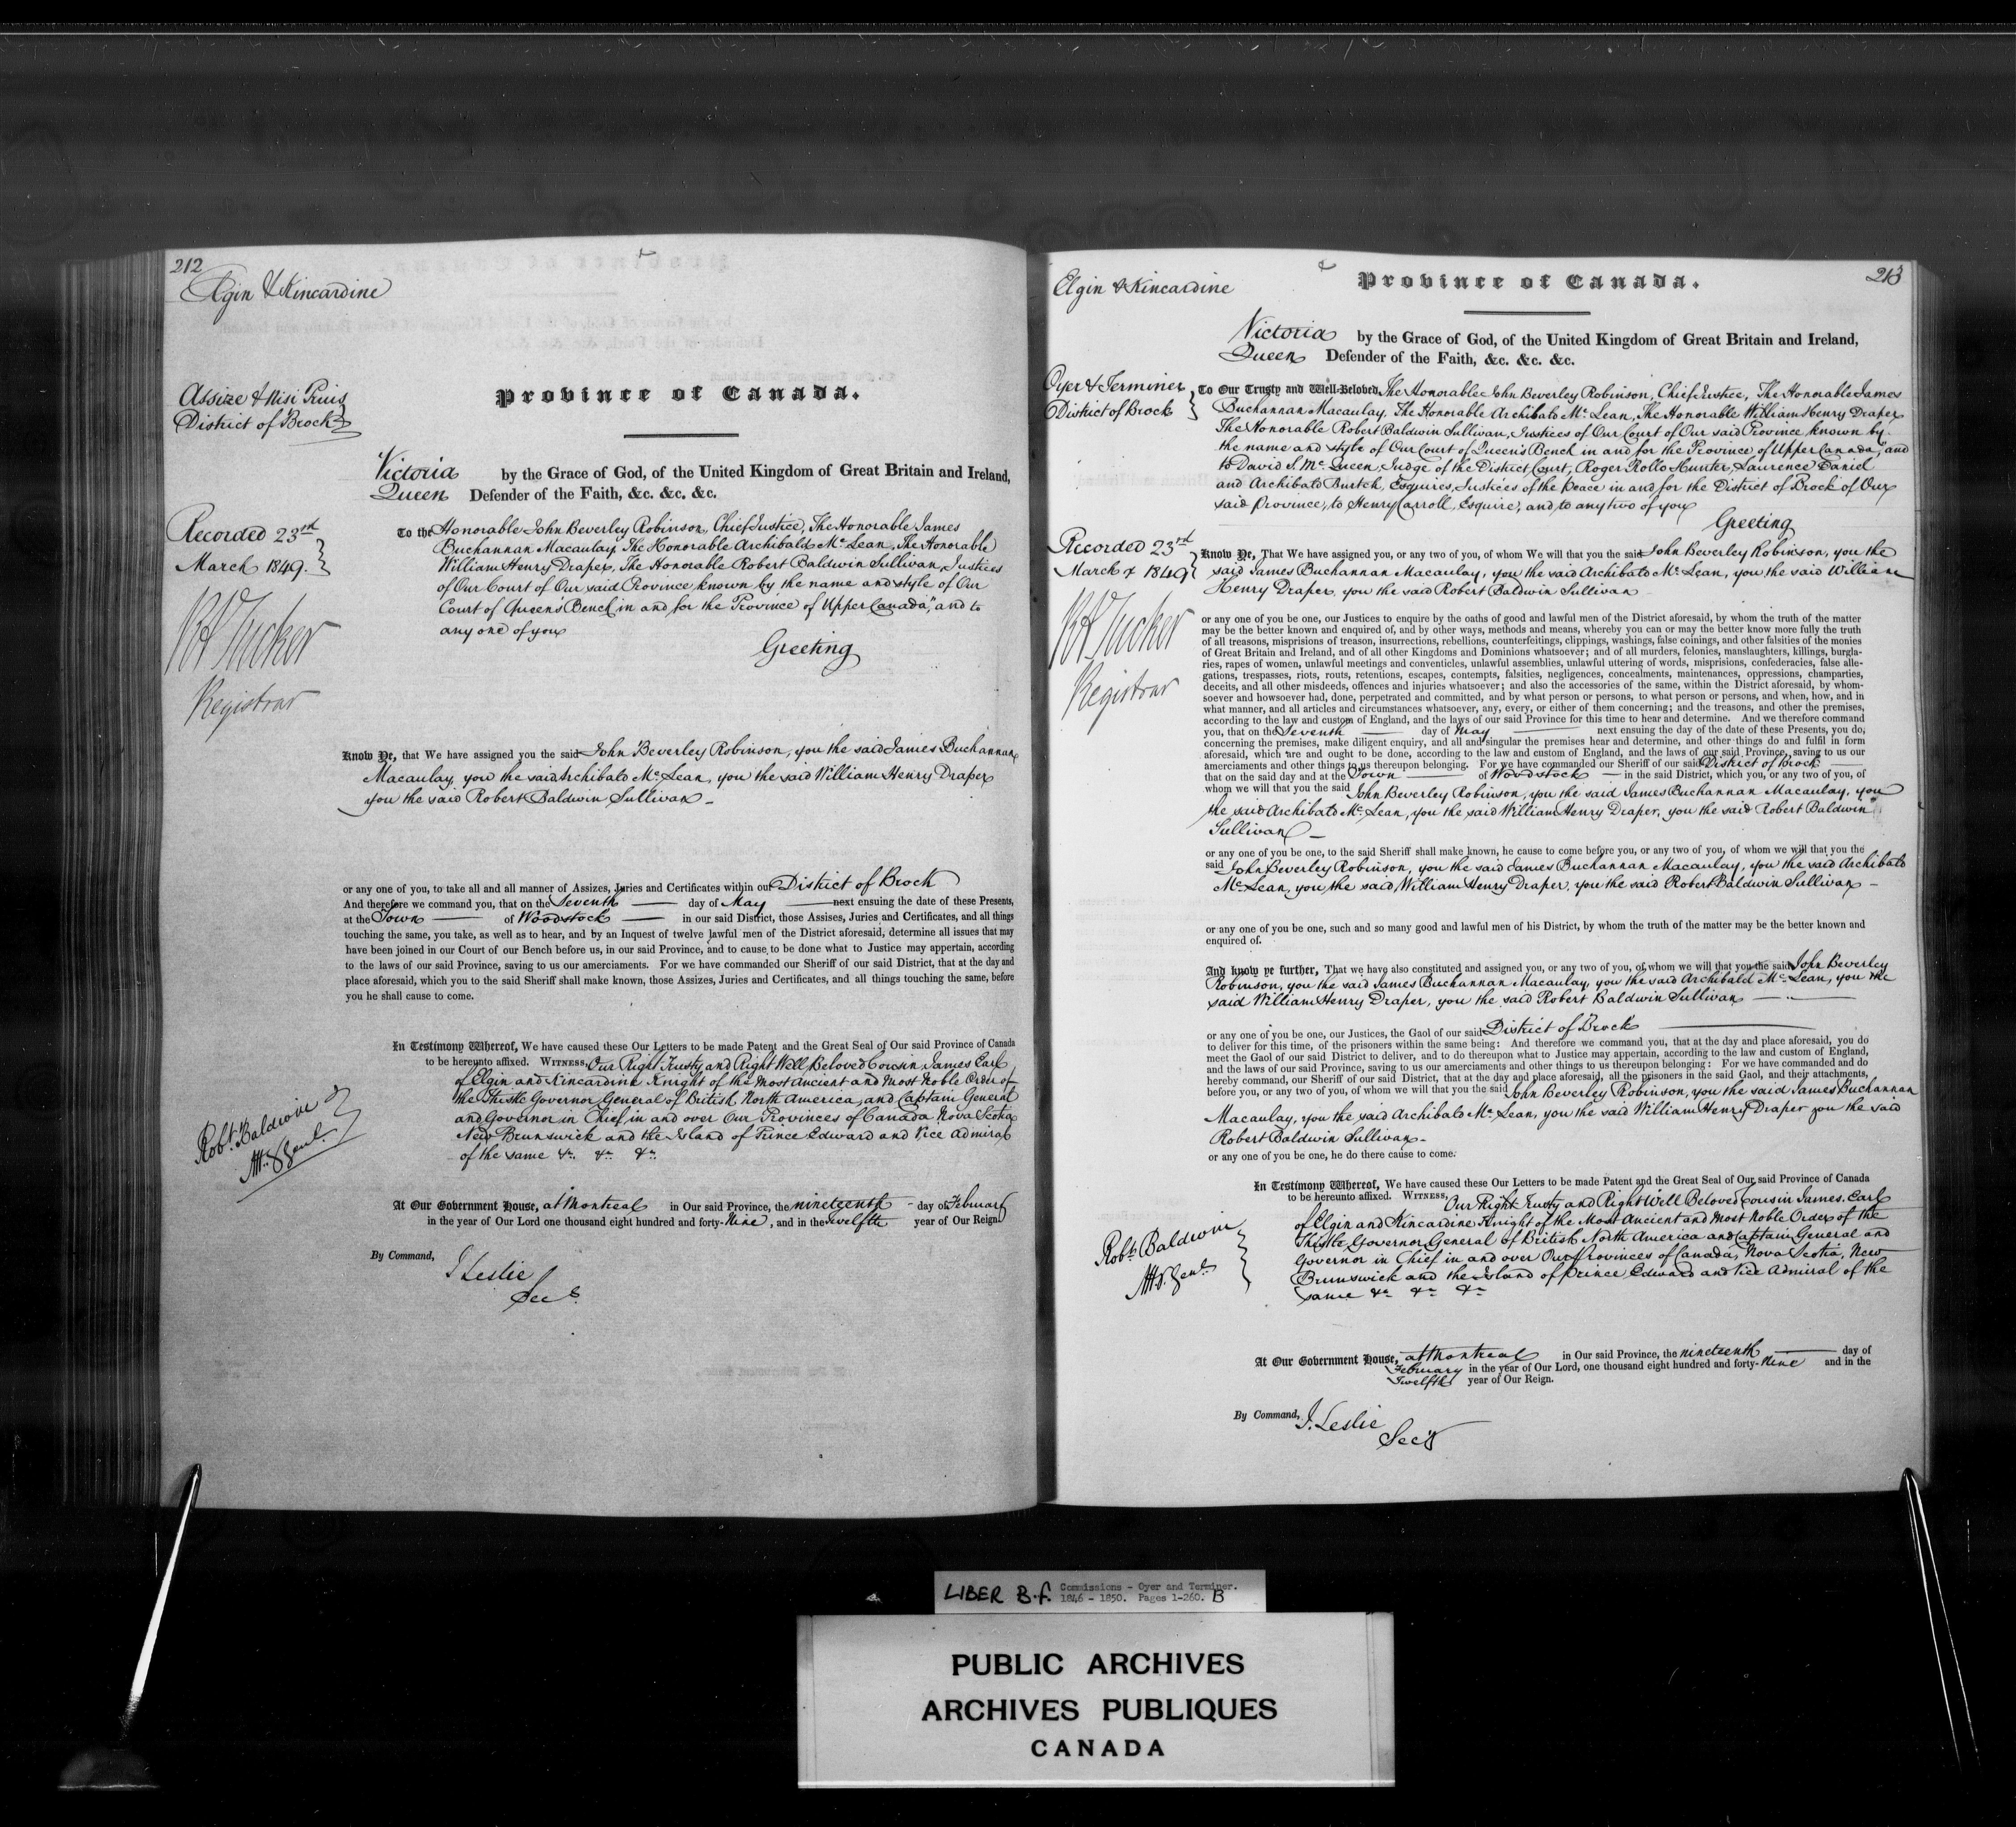 212
Elgin & Kincardine
Assize & Nisi Prius
District of Brock
Province of Canada.
Victoria by the Grace of God, of the United Kingdom of Great Britain and Ireland,
Queen Defender of the Faith, &c. &c. &c.
Recorded 23rd
March 1849.
Registrar
To the Honorable John Beverley Robinson, Chief Justice, The Honorable James
Buchannan Macaulay, The Honorable Archibald McLean, The Honorable
William Henry Draper, The Honorable Robert Baldwin Sullivan, Justices
of Our Court of Our said Province, known by the name and style of Our
Court of Queen's Bench in and for the Province of Upper Canada," and to
any one of you
Greeting
Know Ye, that We have assigned you the said John Beverley Robinson, you the said James Buchannan
Macaulay, you the said Archibald McLean, you the said William Henry Draper
you the said Robert Baldwin Sullivan -
or any one of you, to take all and all manner of Assizes, Juries and Certificates within our District of Brock
And therefore we command you, that on the Seventh day of May next ensuing the date of these Presents,
at the Town of Woodstock in our said District, those Assises, Juries and Certificates, and all things
touching the same, you take, as well as to hear, and by an Inquest of twelve lawful men of the District aforesaid, determine all issues that may
have been joined in our Court of our Bench before us, in our said Province, and to cause to be done what to Justice may appertain, according
to the laws of our said Province, saving to us our amerciaments. For we have commanded our Sheriff of our said District, that at the day and
place aforesaid, which you to the said Sheriff shall make known, those Assizes, Juries and Certificates, and all things touching the same, before
you he shall cause to come.
In Testimony Whereof, We have caused these Our Letters to be made Patent and the Great Seal of Our said Province of Canada
to be hereunto affixed. WITNESS, Our Right Trusty and Right Well Beloved Cousin James Earl
of Elgin and Kincardine Knight of the Most Ancient and Most Noble Order of
the Thistle Governor General of British North America, and Captain General
and Governor in Chief, in and over Our Provinces of Canada Nova Scotia
New Brunswick and the Island of Prince Edward and Vice Admiral
of the same &c. &c. &c.
Robt. Baldwin
Att. Genl.
At Our Government House, at Montreal in Our said Province, the nineteenth day of February
in the year of Our Lord one thousand eight hundred and forty-Nine, and in the twelfth year of Our Reign
By Command,
J Leslie
Secy.
213
Elgin & Kincardine
Province of Canada.
Victoria by the Grace of God, of the United Kingdom of Great Britain and Ireland,
Queen Defender of the Faith, &c. &c. &c.
Oyer & Terminer
District of Brock
To Our Trusty and Well-Beloved, The Honorable John Beverley Robinson, Chief Justice, The Honorable James
Buchannan Macaulay, The Honorable Archibald McLean, The Honorable William Henry Draper
The Honorable Robert Baldwin Sullivan, Justices of Our Court of Our said Province known by
the name and style of Our Court of Queen's Bench in and for the Province of Upper Canada," and
to David S. McQueen, Judge of the District Court, Roger Rollo Hunter, Laurence Daniel
and Archibald Burtch, Esquires, Justices of the Peace in and for the District of Brock of Our
said Province, to Henry Carroll, Esquire, and to any two of you
Greeting
Recorded 23rd
March 1849
Registrar
Know Ye, That We have assigned you, or any two of you, of whom We will that you the said John Beverley Robinson, you the
said James Buchannan Macaulay, you the said Archibald McLean, you the said William
Henry Draper, you the said Robert Baldwin Sullivan
or any one of you be one, our Justices to enquire by the oaths of good and lawful men of the District aforesaid, by whom the truth of the matter
may be the better known and enquired of, and by other ways, methods and means, whereby you can or may the better know more fully the truth
of all treasons, misprisions of treason, insurrections, rebellions, counterfeitings, clippings, washings, false coinings, and other falsities of the monies
of Great Britain and Ireland, and of all other Kingdoms and Dominions whatsoever; and of all murders, felonies, manslaughters, killings, burgla-
ries, rapes of women, unlawful meetings and conventicles, unlawful assemblies, unlawful uttering of words, misprisions, confederacies, false alle-
gations, trespasses, riots, routs, retentions, escapes, contempts, falsities, negligences, concealments, maintenances, oppressions, champarties,
deceits, and all other misdeeds, offences and injuries whatsoever; and also the accessories of the same, within the District aforesaid, by whom-
soever and howsoever had, done, perpetrated and committed, and by what person or persons, to what person or persons, and when, how, and in
what manner, and all articles and circumstances whatsoever, any, every, or either of them concerning; and the treasons, and other the premises,
according to the law and custom of England, and the laws of our said Province for this time to hear and determine. And we therefore command
you, that on the Seventh day of May next ensuing the day of the date of these Presents, you do,
concerning the premises, make diligent enquiry, and all and singular the premises hear and determine, and other things do and fulfil in form
aforesaid, which are and ought to be done, according to the law and custom of England, and the laws of our said Province, saving to us our
amerciaments and other things to us thereupon belonging. For we have commanded our Sheriff of our said District of Brock
that on the said day and at the Town of Woodstock in the said District, which you, or any two of you, of
whom we will that you the said John Beverley Robinson, you the said James Buchannan Macaulay, you
the said Archibald McLean, you the said William Henry Draper, you the said Robert Baldwin
Sullivan -
or any one of you be one, to the said Sheriff shall make known, he cause to come before you, or any two of you, of whom we will that you the
said John Beverley Robinson, you the said James Buchannan Macaulay, you the said Archibald
McLean, you the said William Henry Draper, you the said Robert Baldwin Sullivan -
or any one of you be one, such and so many good and lawful men of his District, by whom the truth of the matter may be the better known and
enquired of.
And know ye further, That we have also constituted and assigned you, or any two of you, of whom we will that you the said John Beverley
Robinson, you the said James Buchannan Macaulay, you the said Archibald McLean, you the
said William Henry Draper, you the said Robert Baldwin Sullivan
or any one of you be one, our Justices, the Gaol of our said District of Brock
to deliver for this time, of the prisoners within the same being: And therefore we command you, that at the day and place aforesaid, you do
meet the Gaol of our said District to deliver, and to do thereupon what to Justice may appertain, according to the law and custom of England,
and the laws of our said Province, saving to us our amerciaments and other things to us thereupon belonging: For we have commanded and do
hereby command, our Sheriff of our said District, that at the day and place aforesaid, all the prisoners in the said Gaol, and their attachments,
before you, or any two of you, of whom we will that you the said John Beverley Robinson, you the said James Buchannan
Macaulay, you the said Archibald McLean, you the said William Henry Draper you the said
Robert Baldwin Sullivan -
or any one of you be one, he do there cause to come.
In Testimony Whereof, We have caused these Our Letters to be made Patent and the Great Seal of Our said Province of Canada
to be hereunto affixed. WITNESS, Our Right Trusty and Right Well Beloved Cousin James, Earl
of Elgin and Kincardine Knight of the Most Ancient and Most Noble Order of the
Thistle, Governor General of British North America and Captain General and
Governor in Chief in and over Our Provinces of Canada, Nova Scotia, New
Brunswick and the Island of Prince Edward and Vice Admiral of the
same &c &c &c
Robt. Baldwin
Att. Genl.
At Our Government House, at Montreal in Our said Province, the nineteenth day of
February in the year of Our Lord, one thousand eight hundred and forty-Nine and in the
Twelfth year of Our Reign.
By Command,
J. Leslie
Secy
LIBER B.f. Commissions - Oyer and Terminer.
1846 - 1850. Pages 1-260. B
PUBLIC ARCHIVES
ARCHIVES PUBLIQUES
CANADA